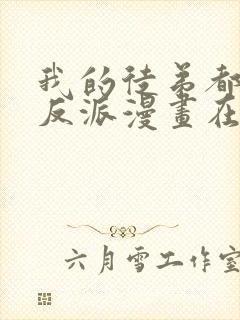 我的徒弟都
反派漫畫在
六月雪工作室